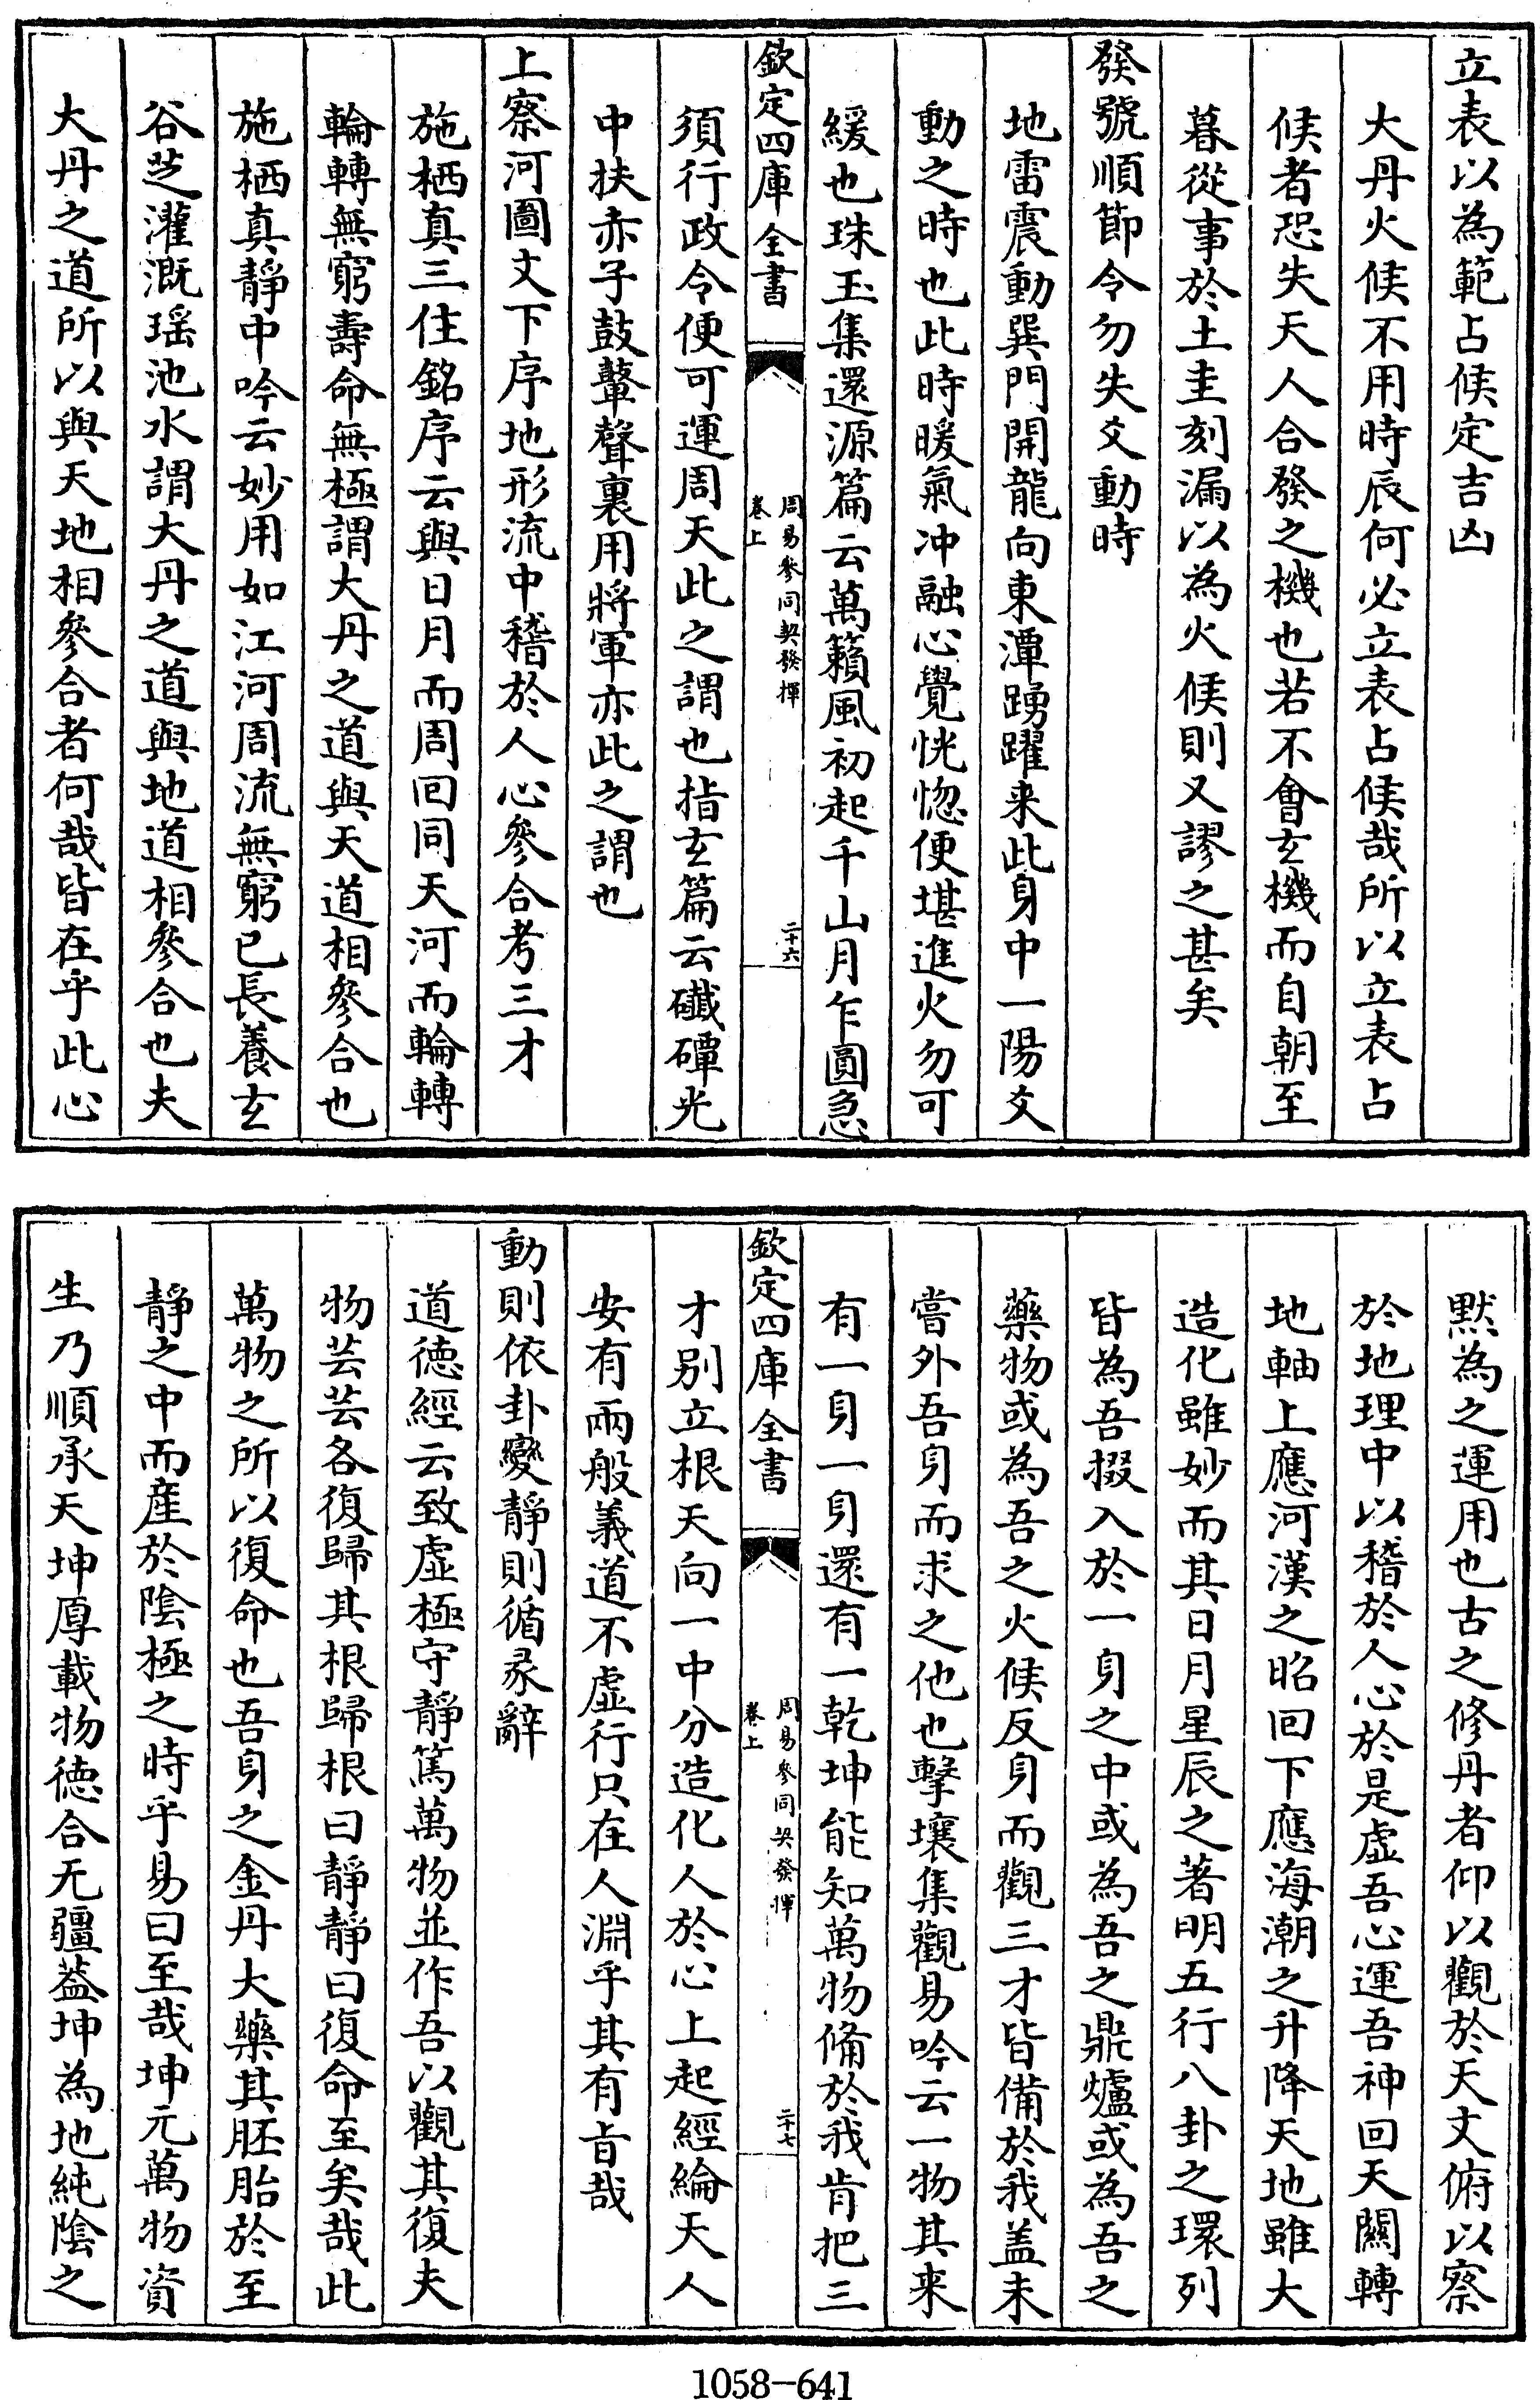 立表以為範占候定吉凶
大丹火候不用時辰何必立表占候哉所以立表占
候者恐失天人合發之機也若不會玄機而自朝至
暮從事於土圭刻漏以為火候則又謬之甚矣
發號順節令勿失爻動時
地雷震動巽門開龍向東潭踴躍来此身中一陽爻
動之時也此時暖氣冲融心覺恍惚便堪進火勿可
緩也珠玉集還源篇云萬籟風初起千山月乍圓急
欽定四庫全書
周易參同契發揮
卷上
二十六
須行政令便可運周天此之謂也指玄篇云䃸磹光
中扶赤子鼓鼙聲裏用將軍亦此之謂也
上察河圖文下序地形流中稽於人心參合考三才
施栖真三住銘序云與日月而周回同天河而輪轉
輪轉無窮壽命無極謂大丹之道與天道相參合也
施栖真靜中吟云妙用如江河周流無窮已長養玄
谷芝灌溉瑶池水謂大丹之道與地道相參合也夫
大丹之道所以與天地相參合者何哉皆在乎此心
默為之運用也古之修丹者仰以觀於天文俯以察
於地理中以稽於人心於是虛吾心運吾神回天關轉
地軸上應河漢之昭回下應海潮之升降天地雖大
造化雖妙而其日月星辰之著明五行八卦之環列
皆為吾掇入於一身之中或為吾之鼎爐或為吾之
藥物或為吾之火候反身而觀三才皆備於我盖未
嘗外吾身而求之他也擊壤集觀易吟云一物其来
有一身一身還有一乾坤能知萬物備於我肯把三
欽定四庫全書
周易參同契發揮
卷上
二十七
才别立根天向一中分造化人於心上起經綸天人
安有兩般義道不虛行只在人淵乎其有旨哉
動則依卦變靜則循彖辭
道德經云致虛極守靜篤萬物並作吾以觀其復夫
物芸芸各復歸其根歸根曰靜靜曰復命至矣哉此
萬物之所以復命也吾身之金丹大藥其胚胎於至
靜之中而産於陰極之時乎易曰至哉坤元萬物資
生乃順承天坤厚載物徳合无疆葢坤為地純陰之
1058-641